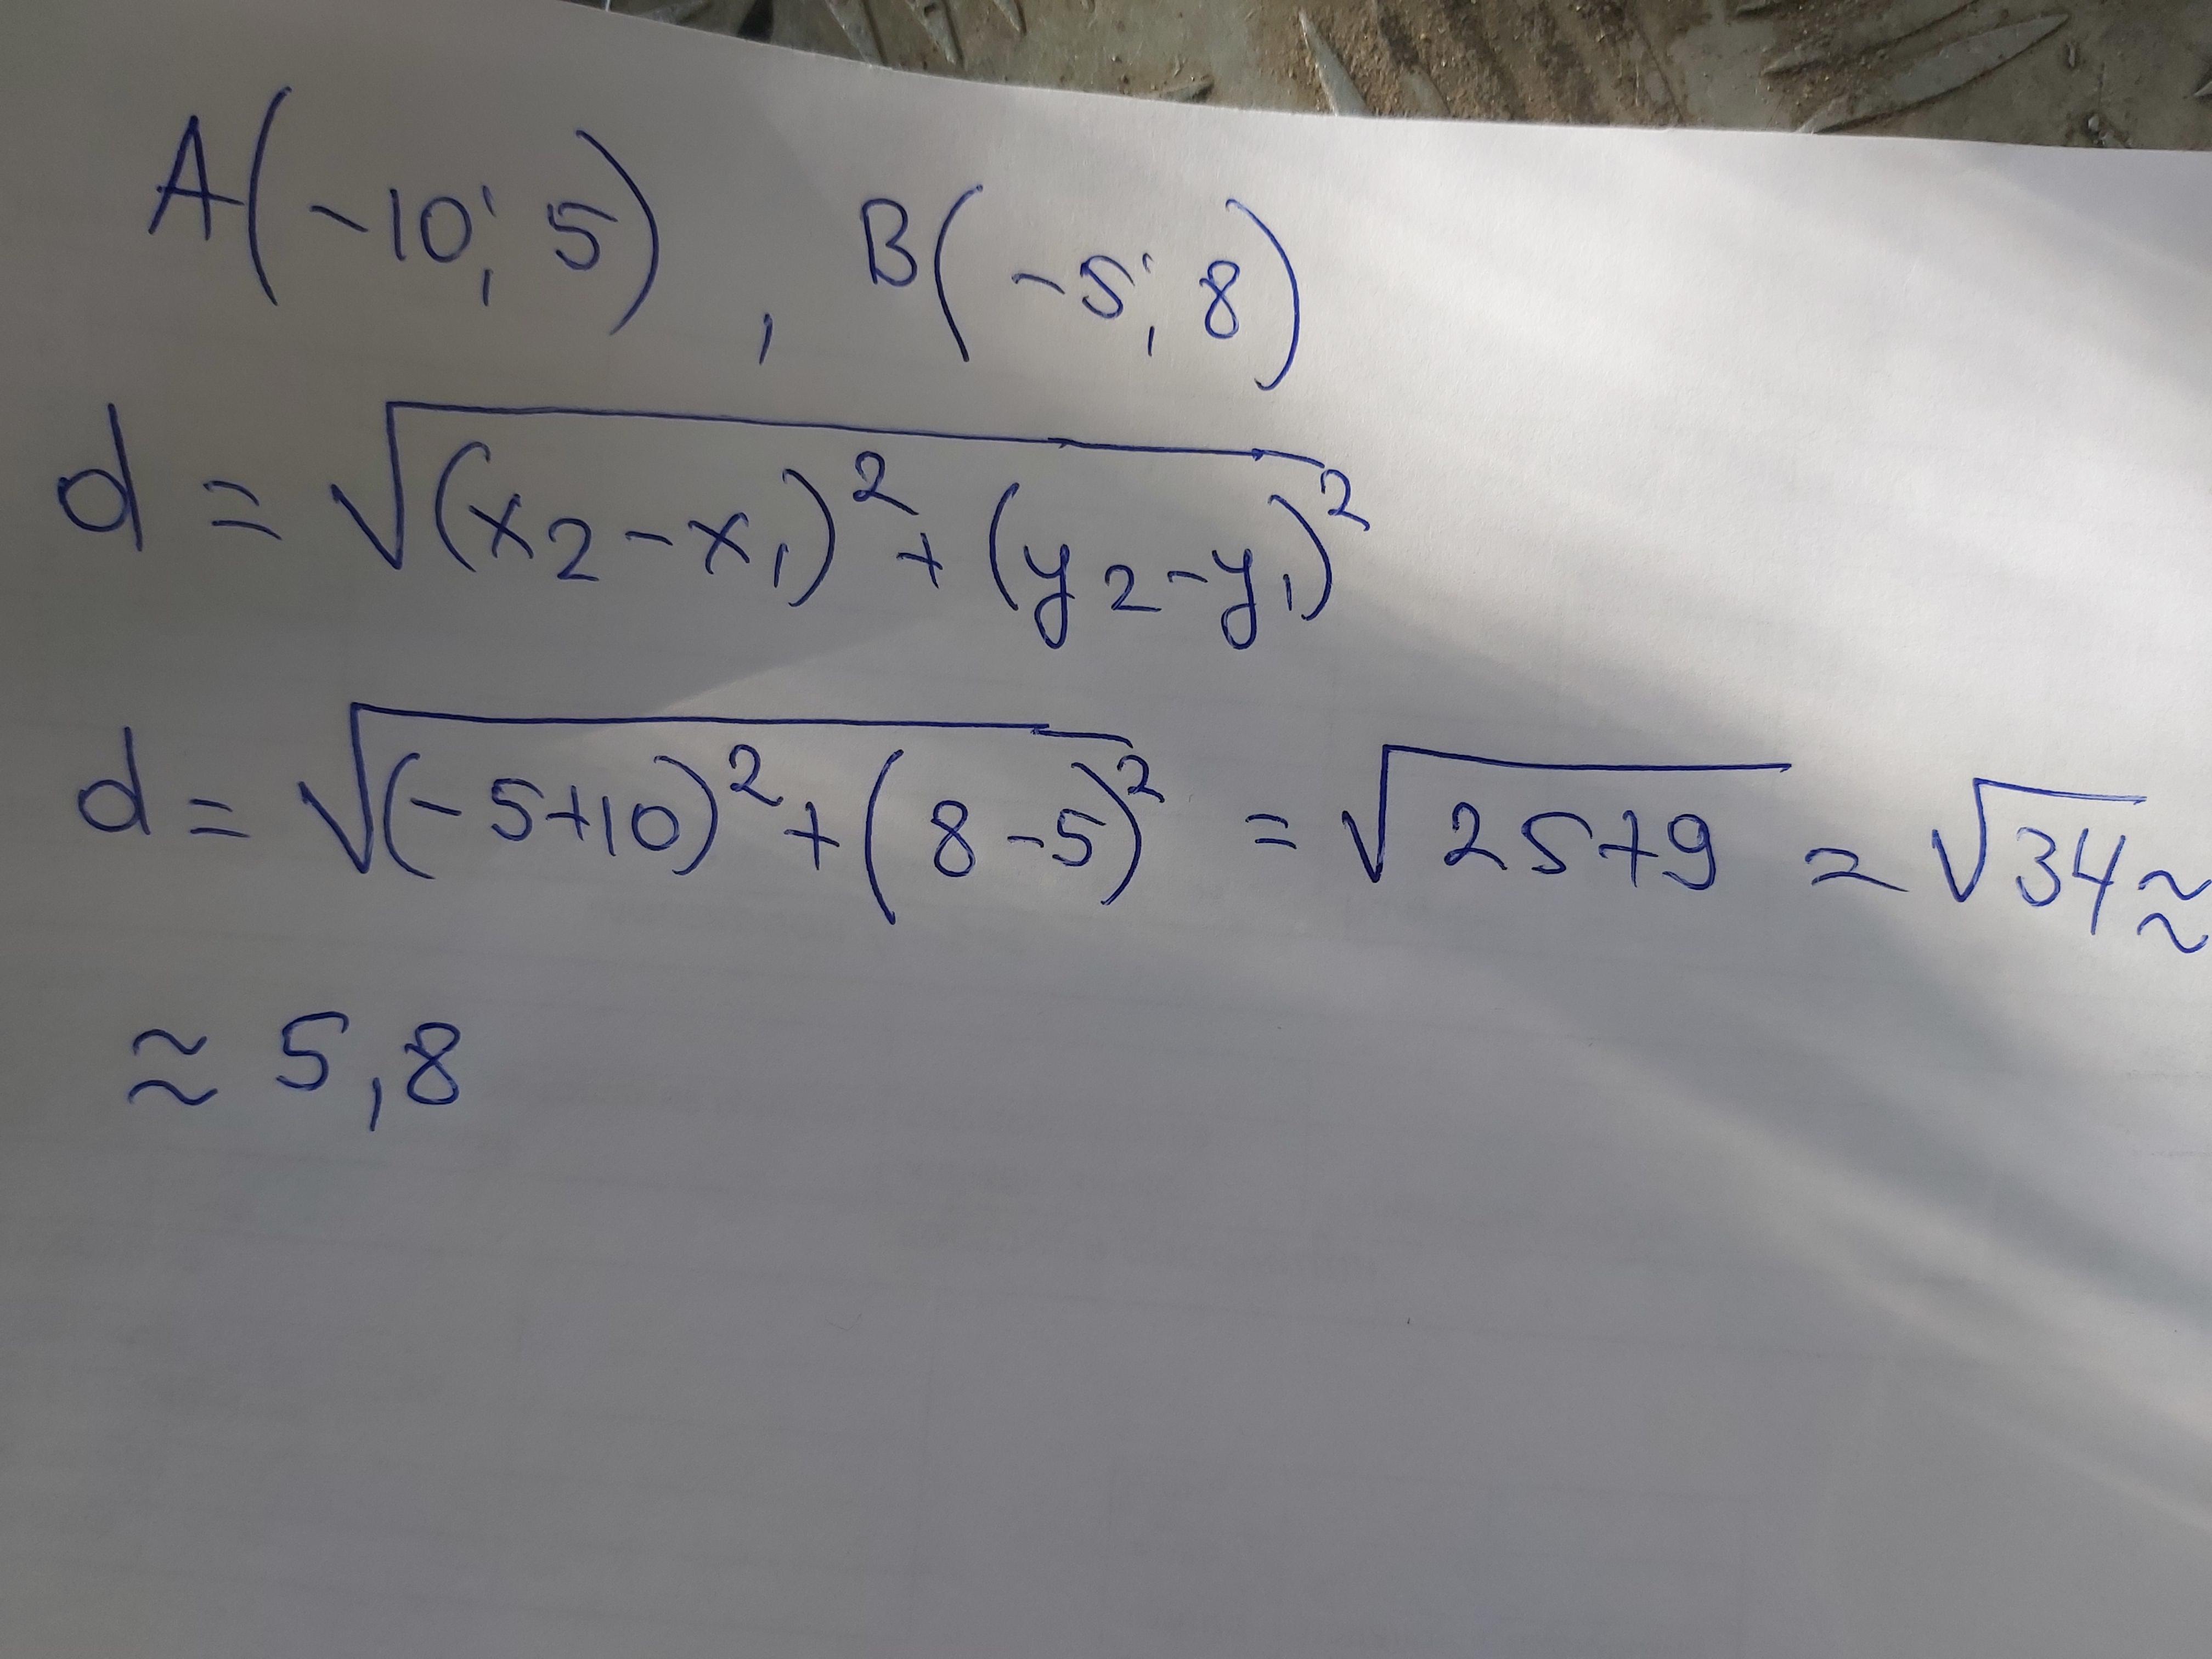 A(-10; 5), B(-5; 8)
d = √(x₂-x₁)² + (y₂-y₁)²
d = √(-5+10)² + (8-5)² = √25+9 = √34 ≈
≈ 5,8